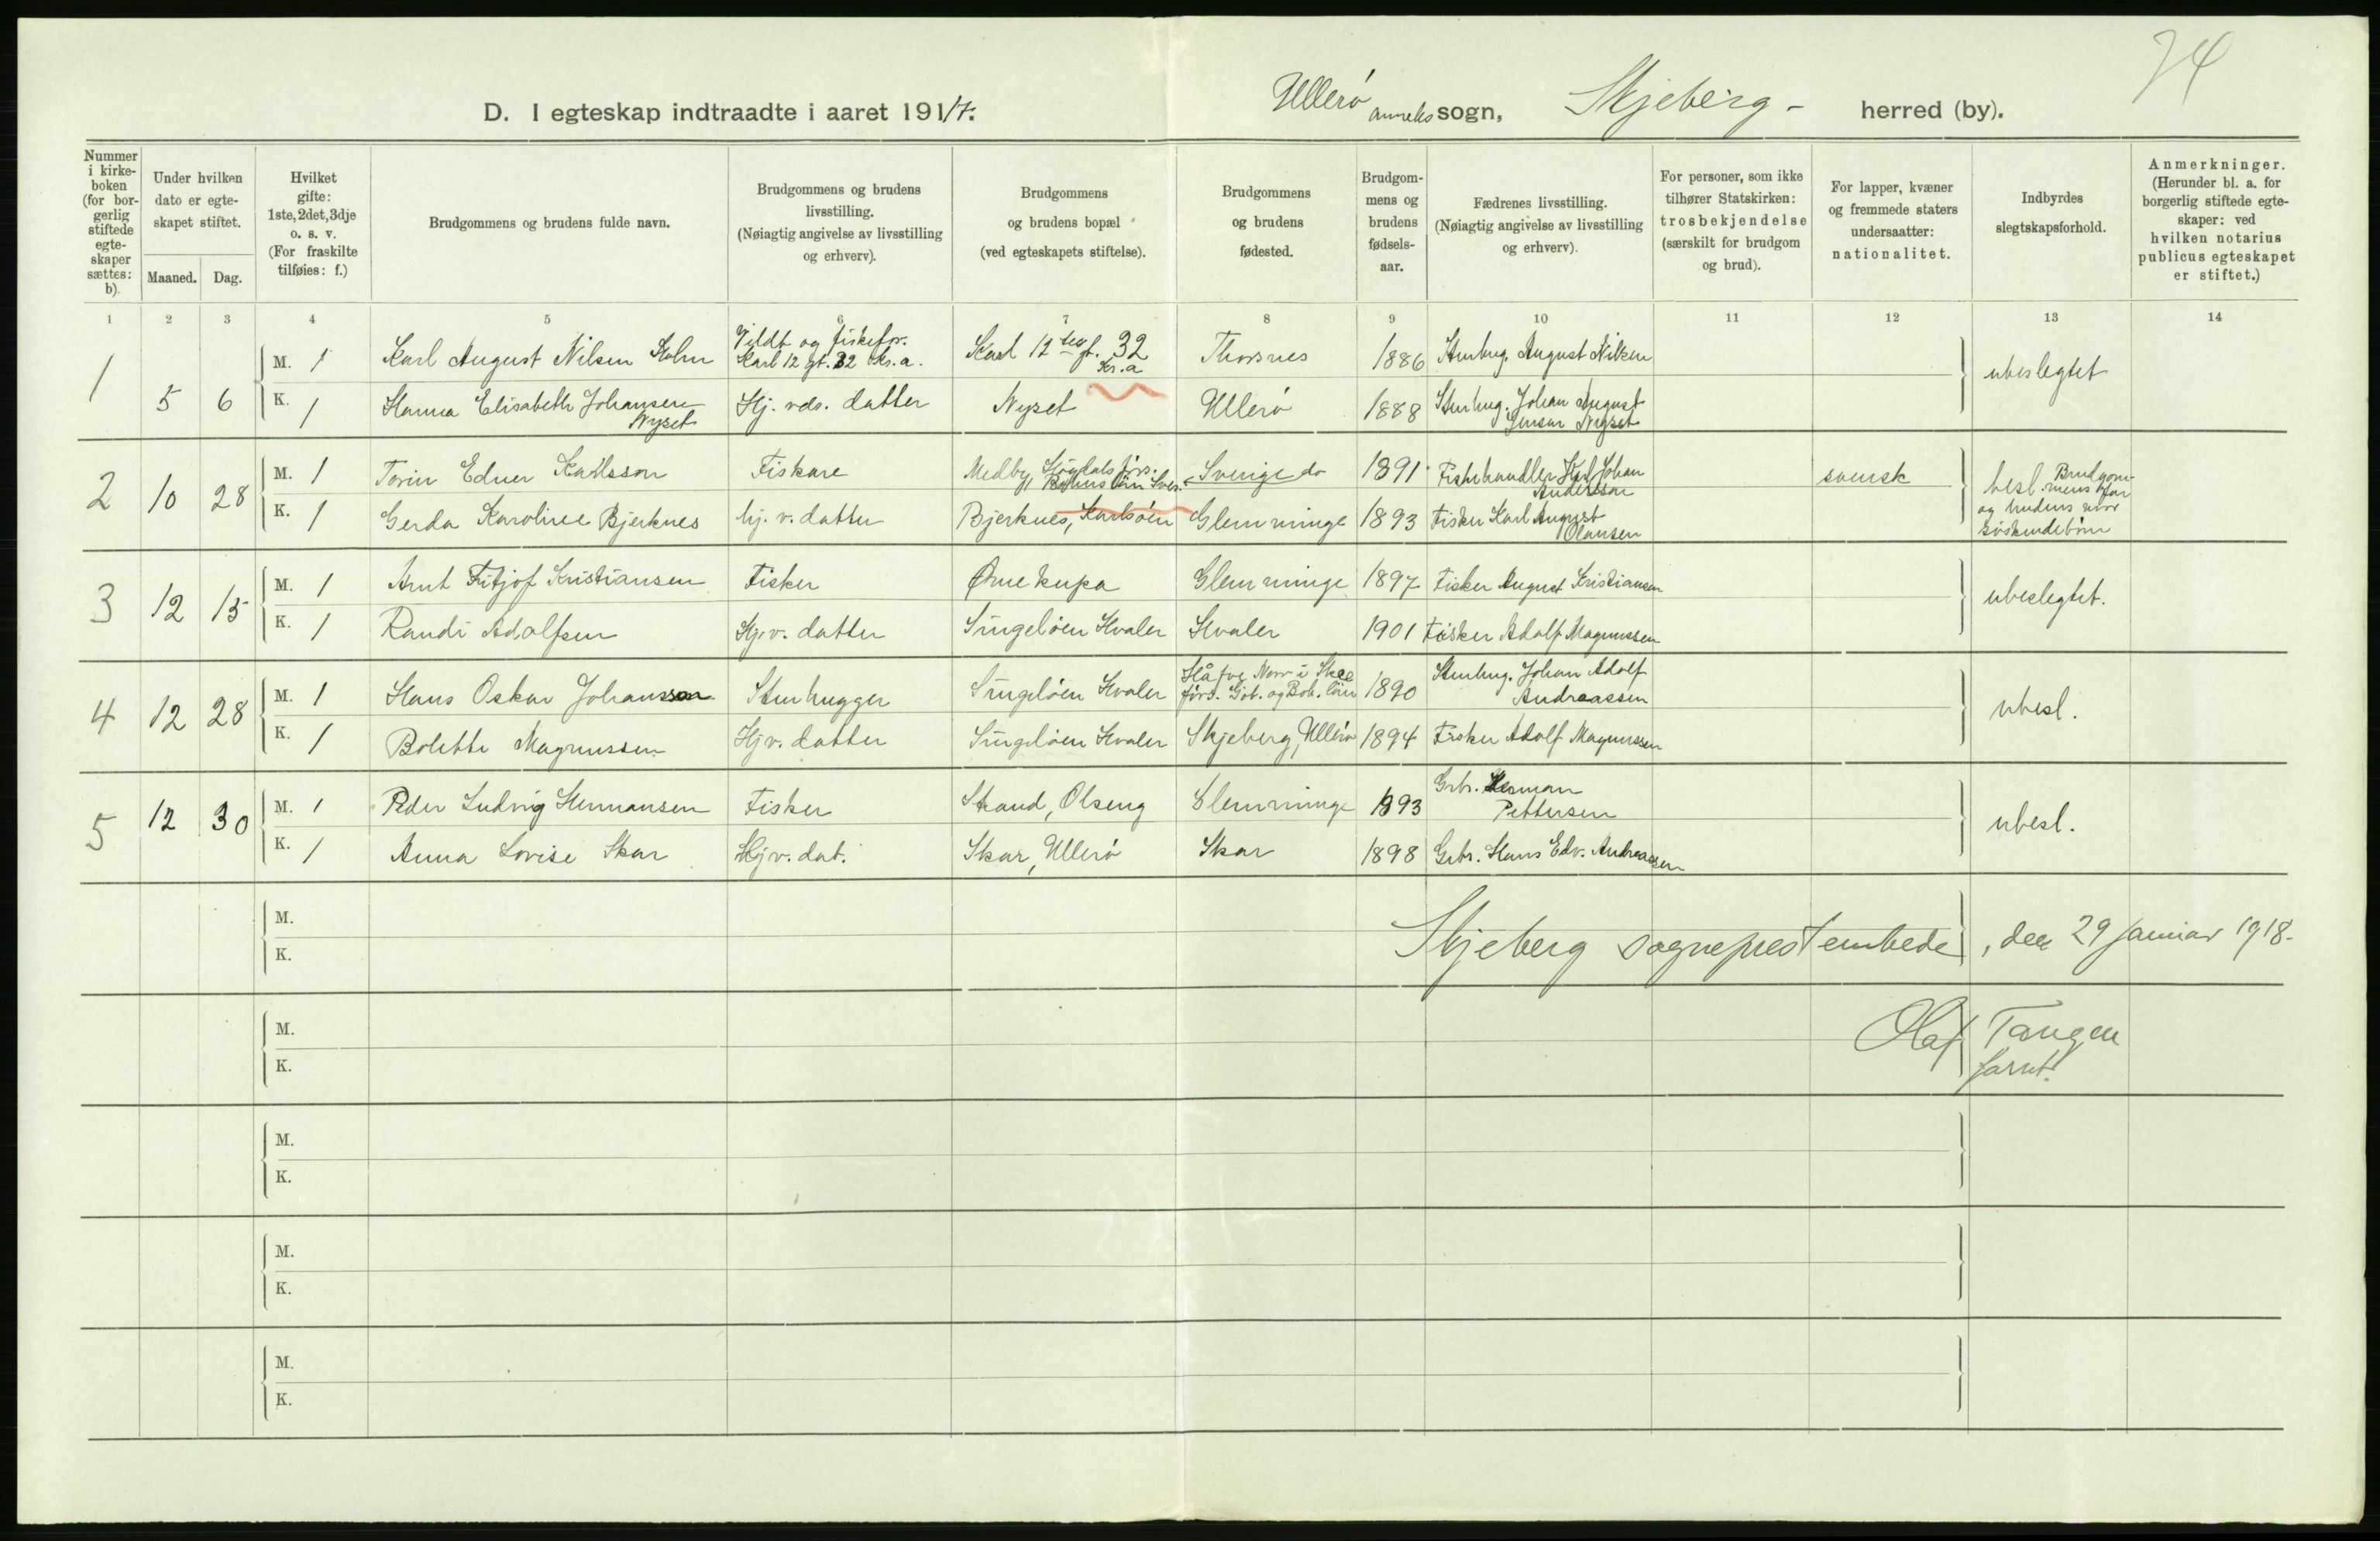 74
D. I egteskap indtraadte i aaret 1917. Ullerö anneks sogn, Skjeberg - herred (by).
Nummer i kirke-boken (for bor-gerlig stiftede egte-skaper sættes: b).
Under hvilken dato er egte-skapet stiftet.
Maaned. Dag.
Hvilket gifte: 1ste, 2det, 3dje o. s. v. (For fraskilte tilføies: f.)
Brudgommens og brudens fulde navn.
Brudgommens og brudens livsstilling. (Nøiagtig angivelse av livsstilling og erhverv).
Brudgommens og brudens bopæl (ved egteskapets stiftelse).
Brudgommens og brudens fødested.
Brudgom-mens og brudens fødsels-aar.
Fædrenes livsstilling. (Nøiagtig angivelse av livsstilling og erhverv).
For personer, som ikke tilhører Statskirken: trosbekjendelse (særskilt for brudgom og brud).
For lapper, kvæner og fremmede staters undersaatter: nationalitet.
Indbyrdes slegtskapsforhold.
Anmerkninger. (Herunder bl. a. for borgerlig stiftede egte-skaper: ved hvilken notarius publicus egteskapet er stiftet.)
1 2 3 4 5 6 7 8 9 10 11 12 13 14
1 5 6 M. 1 Karl August Nilsen Holm Vildt og fiskefor. Karl 12 gt. 32 Kr.a. Karl 12 tes gt. 32 Kr.a Thorsnes 1886 Stenhug. August Nilsen ubeslegtet
K. 1 Hanna Elisabeth Johansen Nyset Hj. vds. datter Nyset Ullerö 1888 Stenhug. Johan August Jensen Nyset
2 10 28 M. 1 Edner Karlsson Fiskare Medby, Bohus län Sver. Sverige do 1891 Fiskehandler Karl Johan Andersson svensk besl. Brudgommens far og brudens mor söskendebörn
K. 1 Gerda Karoline Bjerknes hj. v. datter Bjerknes, Karlsöen Glemminge 1893 Fisker Karl August Olausen
3 12 15 M. 1 Arnt Fritjof Kristiansen Fisker Ørnekupa Glemminge 1897 Fisker August Kristiansen ubeslegtet.
K. 1 Randi Adolfsen Hj.v. datter Singelöen Hvaler Hvaler 1901 Fisker Adolf Magnussen
4 12 28 M. 1 Hans Oskar Johansson Stenhugger Singelöen Hvaler Norr i Skee förs. Göt. og Boh. län 1890 Stenhug. Johan Adolf Andreassen ubesl.
K. 1 Bolette Magnussen Hjv. datter Singelöen Hvaler Skjeberg, Ullerö 1894 Fisker Adolf Magnussen
5 12 30 M. 1 Peder Ludvig Hermansen Fisker Strand, Olseng Glemminge 1893 Grbr. Herman Pettersen ubesl.
K. 1 Anna Lovise Skar Hjv. dat. Skar, Ullerö Skar 1898 Grbr. Hans Edv. Andreassen
M.
K.
Skjeberg sogneprestembede, den 29 januar 1918.
M.
K.
Olaf Tangen
M.
K.
M.
K.
M.
K.